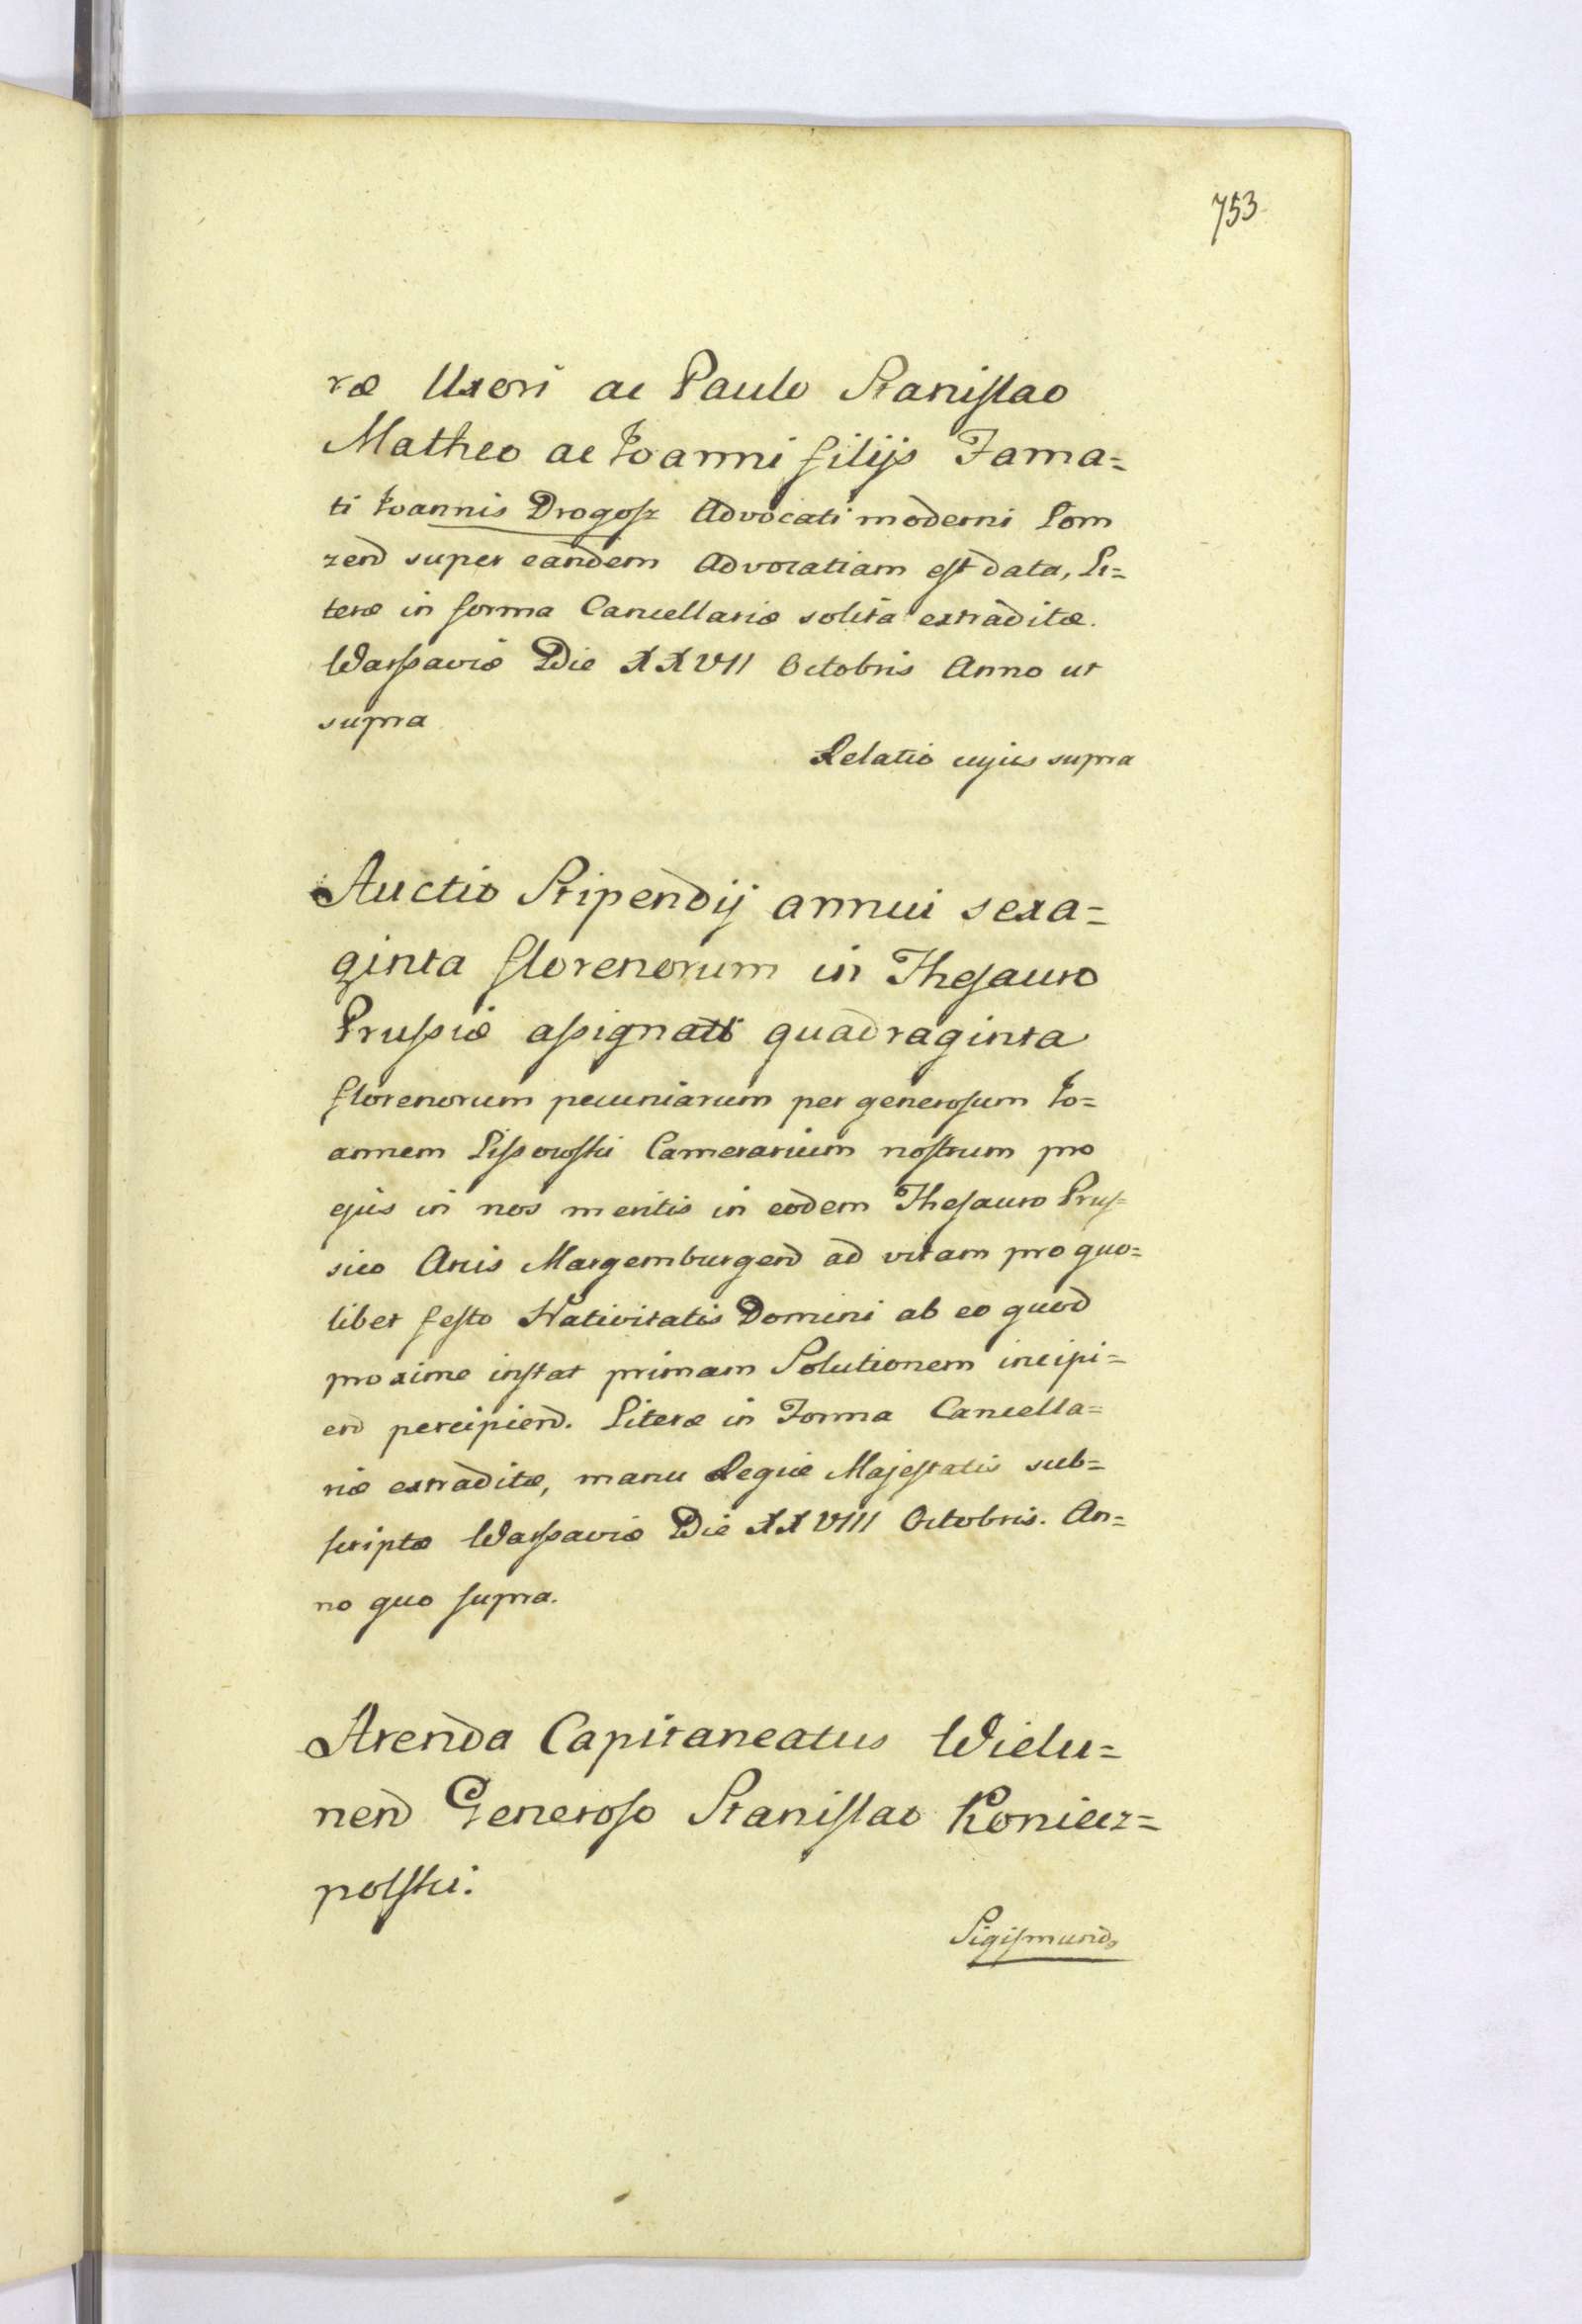 753.
ræ Uxori ac Paulo Stanislao
Matheo ac Joanni filijs Fama=
ti Joannis Drogosz Advocati moderni Lom
zen̄ super eandem Advocatiam est data, Li=
teræ in forma Cancellariæ solita extraditæ.
Warssaviæ Die XXVII Octobris Anno ut
supra
Relatio cujus supra
Auctio Stipendij annui sexa=
ginta florenorum in Thesauro
Prussiæ assignati quadraginta
florenorum pecuniarum per generosum Jo=
annem Lissowski Camerarium nostrum pro
ejus in nos meritis in eodem Thesauro Prus=
sico Arcis Margemburgen̄ ad vitam pro quo=
libet festo Nativitatis Domini ab eo quod
proxime instat primam Solutionem incipi=
en̄ percipien̄. Literæ in Forma Cancella=
riæ extraditæ, manu Regiæ Majestatis sub=
scriptæ Warssaviæ Die XXVIII Octobris. An=
no quo supra.
Arenda Capitaneatus Wielu=
nen̄ Generoso Stanislao Koniecz=
polski.
Sigismund9